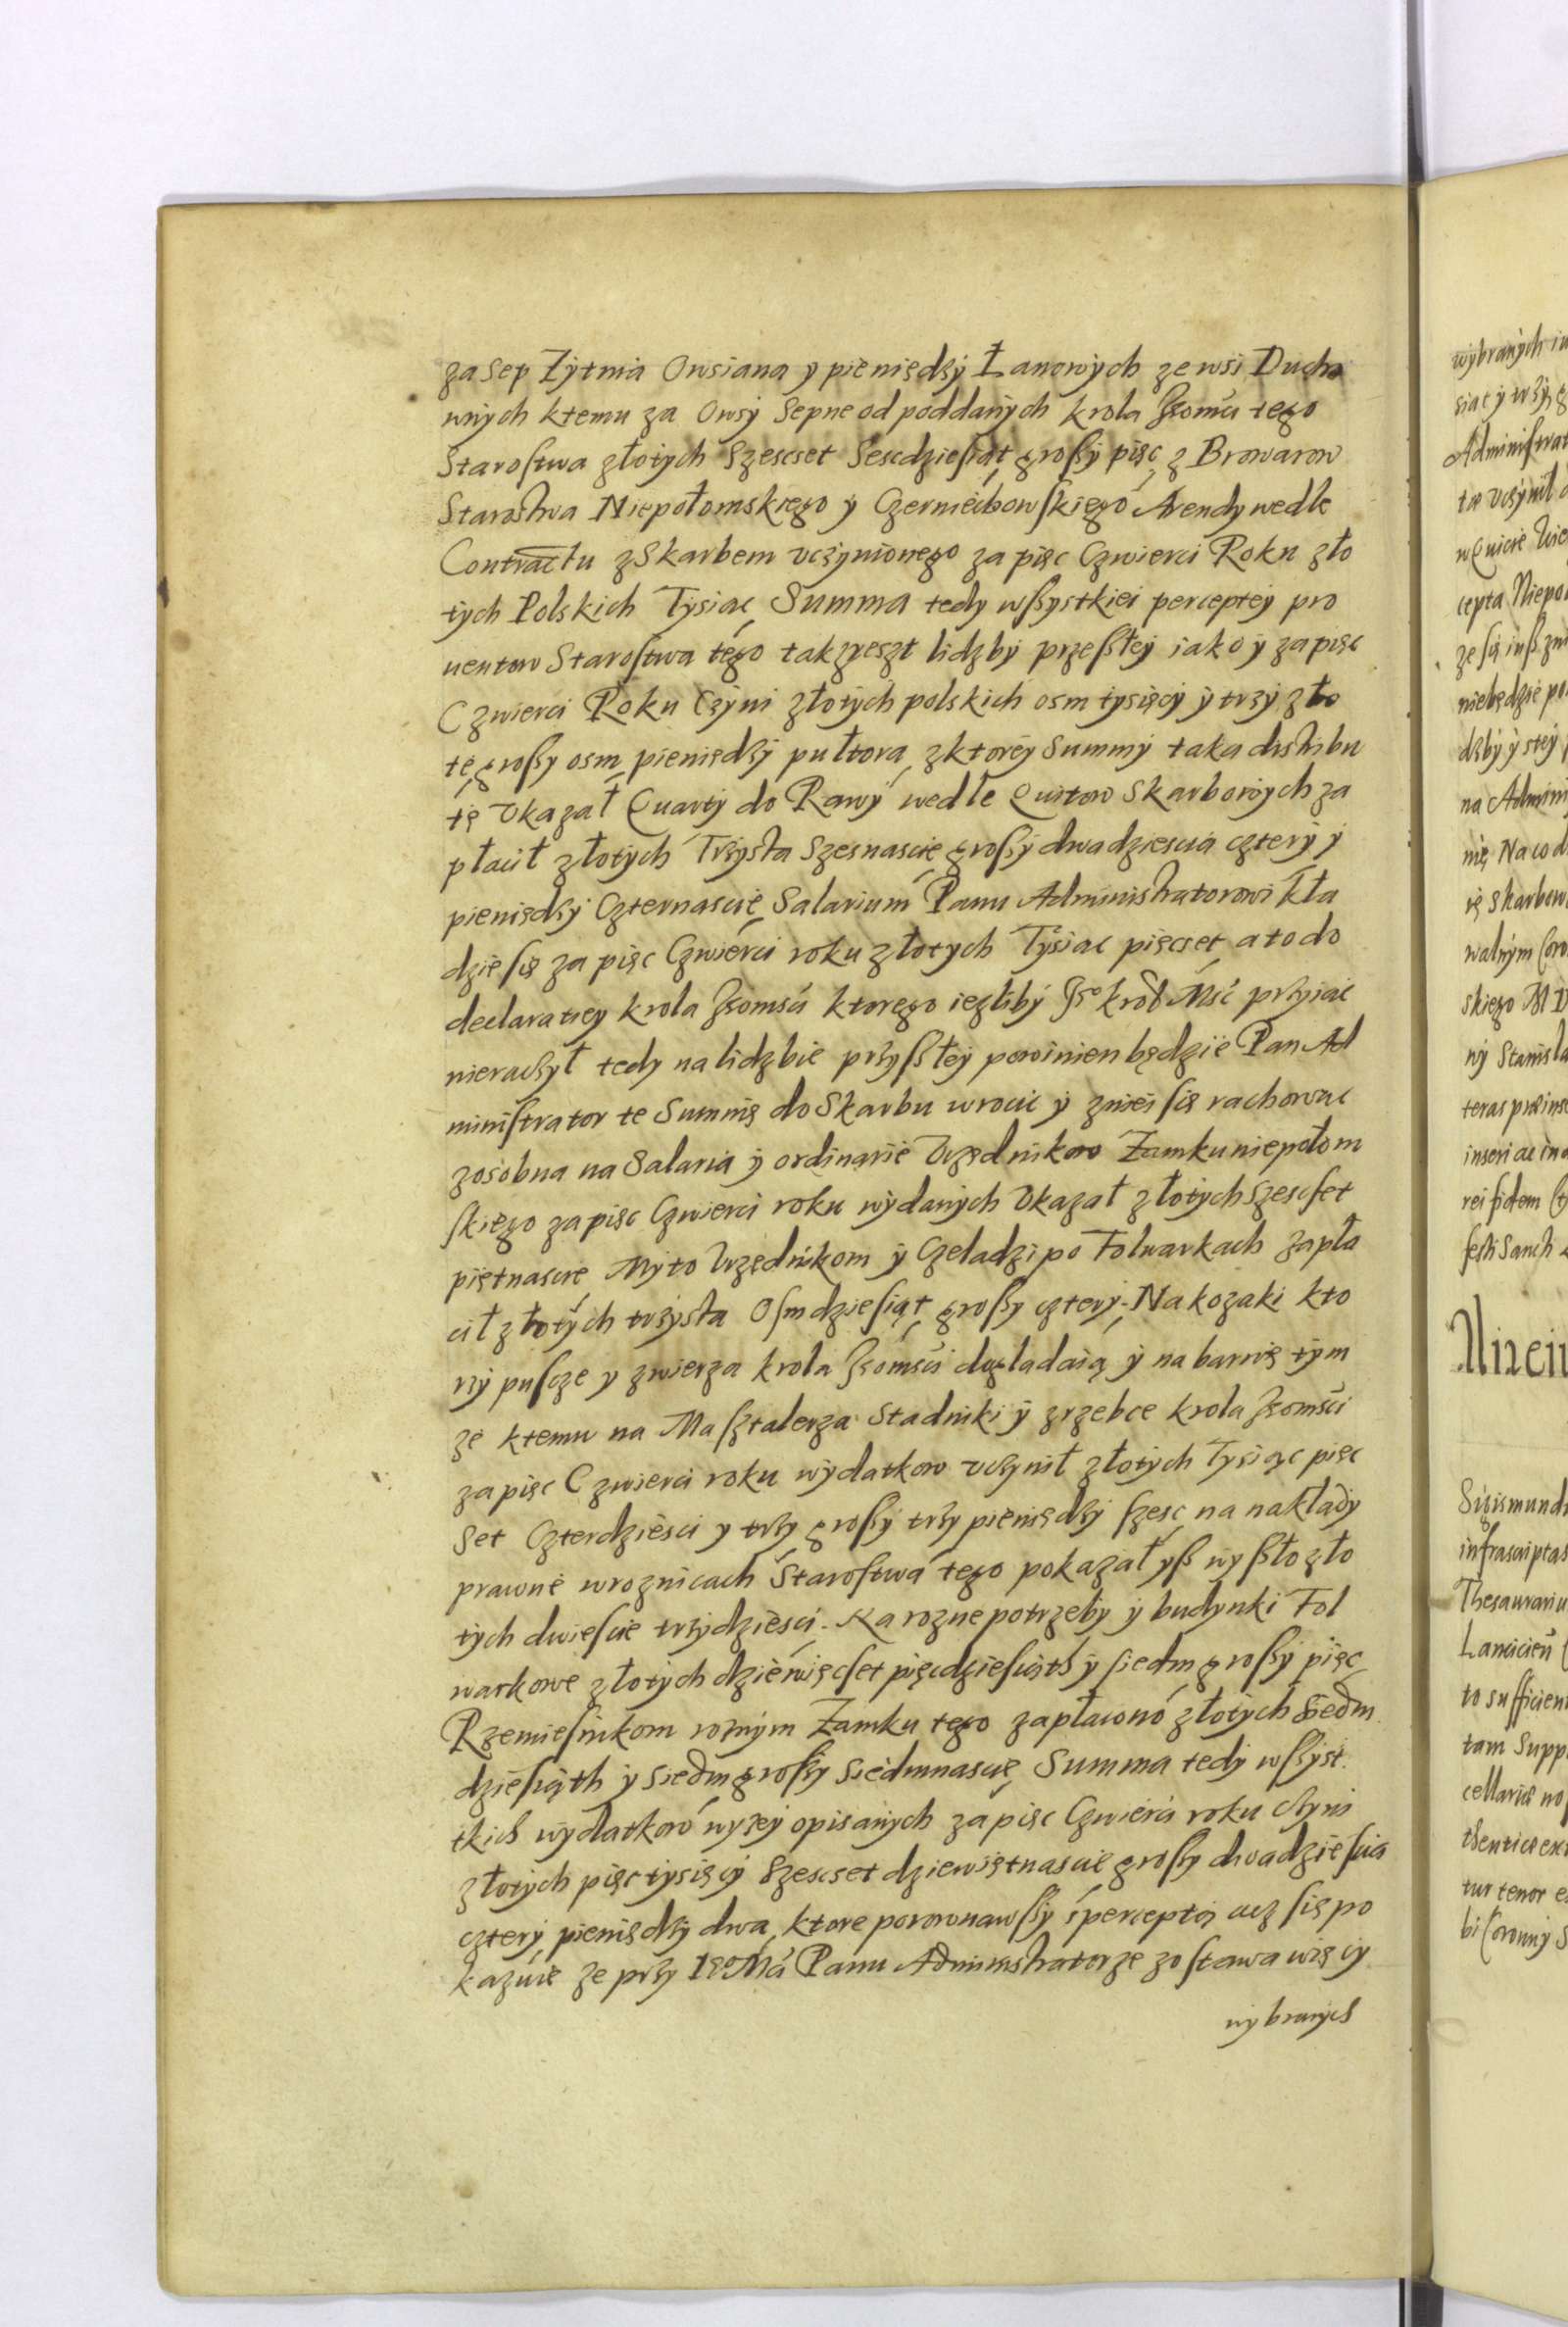 za sep Zytnia Owsiana y pieniędzy Łanowych ze wsi Ducho
wnych ktemu za Owsy Sepne od poddanych krola Jeomści tego
Starostwa złotych Szescset Sescdziesiąt groszy pięc, z Browarow
Starostwa Niepołomskiego y Czerniechowskiego Arendy wedle
Contractu z Skarbem vczynionego za pięc Czwierci Roku zło
tych Polskich Tysiac, Summa tedy wszystkiei perceptey pro
uentow Starostwa tego tak zreszt lidzby przeszłey iako y za pięc
Czwierci Roku Czyni złotych polskich osm tysięcy y trzy zło
te, groszy osm, pieniędzy pułtora, z ktorey Summy taka distribu
tę Vkazał, Quarty do Rawy wedle Quitow Skarbowych za
płacił złotych Trzysta Szesnascie, groszy dwadziescia cztery y
pieniędzy Czternascie, Salarium Panu Administratorowi kła
dzie się za pięc Czwierci roku złotych Tysiac pięcset, a to do
declaratiey krola Jeomści ktorego iezliby Jeo kroł Mść przyiac
nieraczył tedy na lidzbie przyszłey powinien będzie Pan Ad
ministrator te Summę do Skarbu wrocic y zniei się rachowac
zosobna na Salaria y ordinarie Vrzędnikow Zamku niepołom
skiego za pięc Czwierci roku wydanych Vkazał złotych Szescset
piętnascie, Myto Vrzędnikom y Czeladzi po Folwarkach zapła
cił złotych trzysta Osmdziesiąt, groszy cztery; Na kozaki kto
rzy puscze y zwierza krola Jeomści doglądaią y na barwię tym
ze ktemu na Masztalerza Stadniki y zrzebce krola Jeomści
za pięc Czwierci roku wydatkow vczynił złotych Tysiąc pięc
Set Czterdziesci y trzy groszy trzy pieniędzy szesc, na nakłady
prawne wroznicach Starostwa tego pokazał ysz wyszło zło
tych dwiescie trzydziesci. Na rozne potrzeby y budynki Fol
warkowe złotych dziewięcset pięcdziesiąth y siedm groszy pięc,
Rzemiesnikom roznym Zamku tego zapłacono złotych Siedm
dziesiąth y siedm groszy Siedmnascie, Summa tedy wszyst
tkich wydatkow wyzey opisanych za pięc Czwierci roku czyni
złotych pięc tysięcy Szescset dziewiętnascie groszy dwadziescia
cztery, pieniędzy dwa, ktore porownawszy s perceptą acz się po
kazuie ze przy Jeo Mci Panu Administratorze zostawa więcy
wybranych